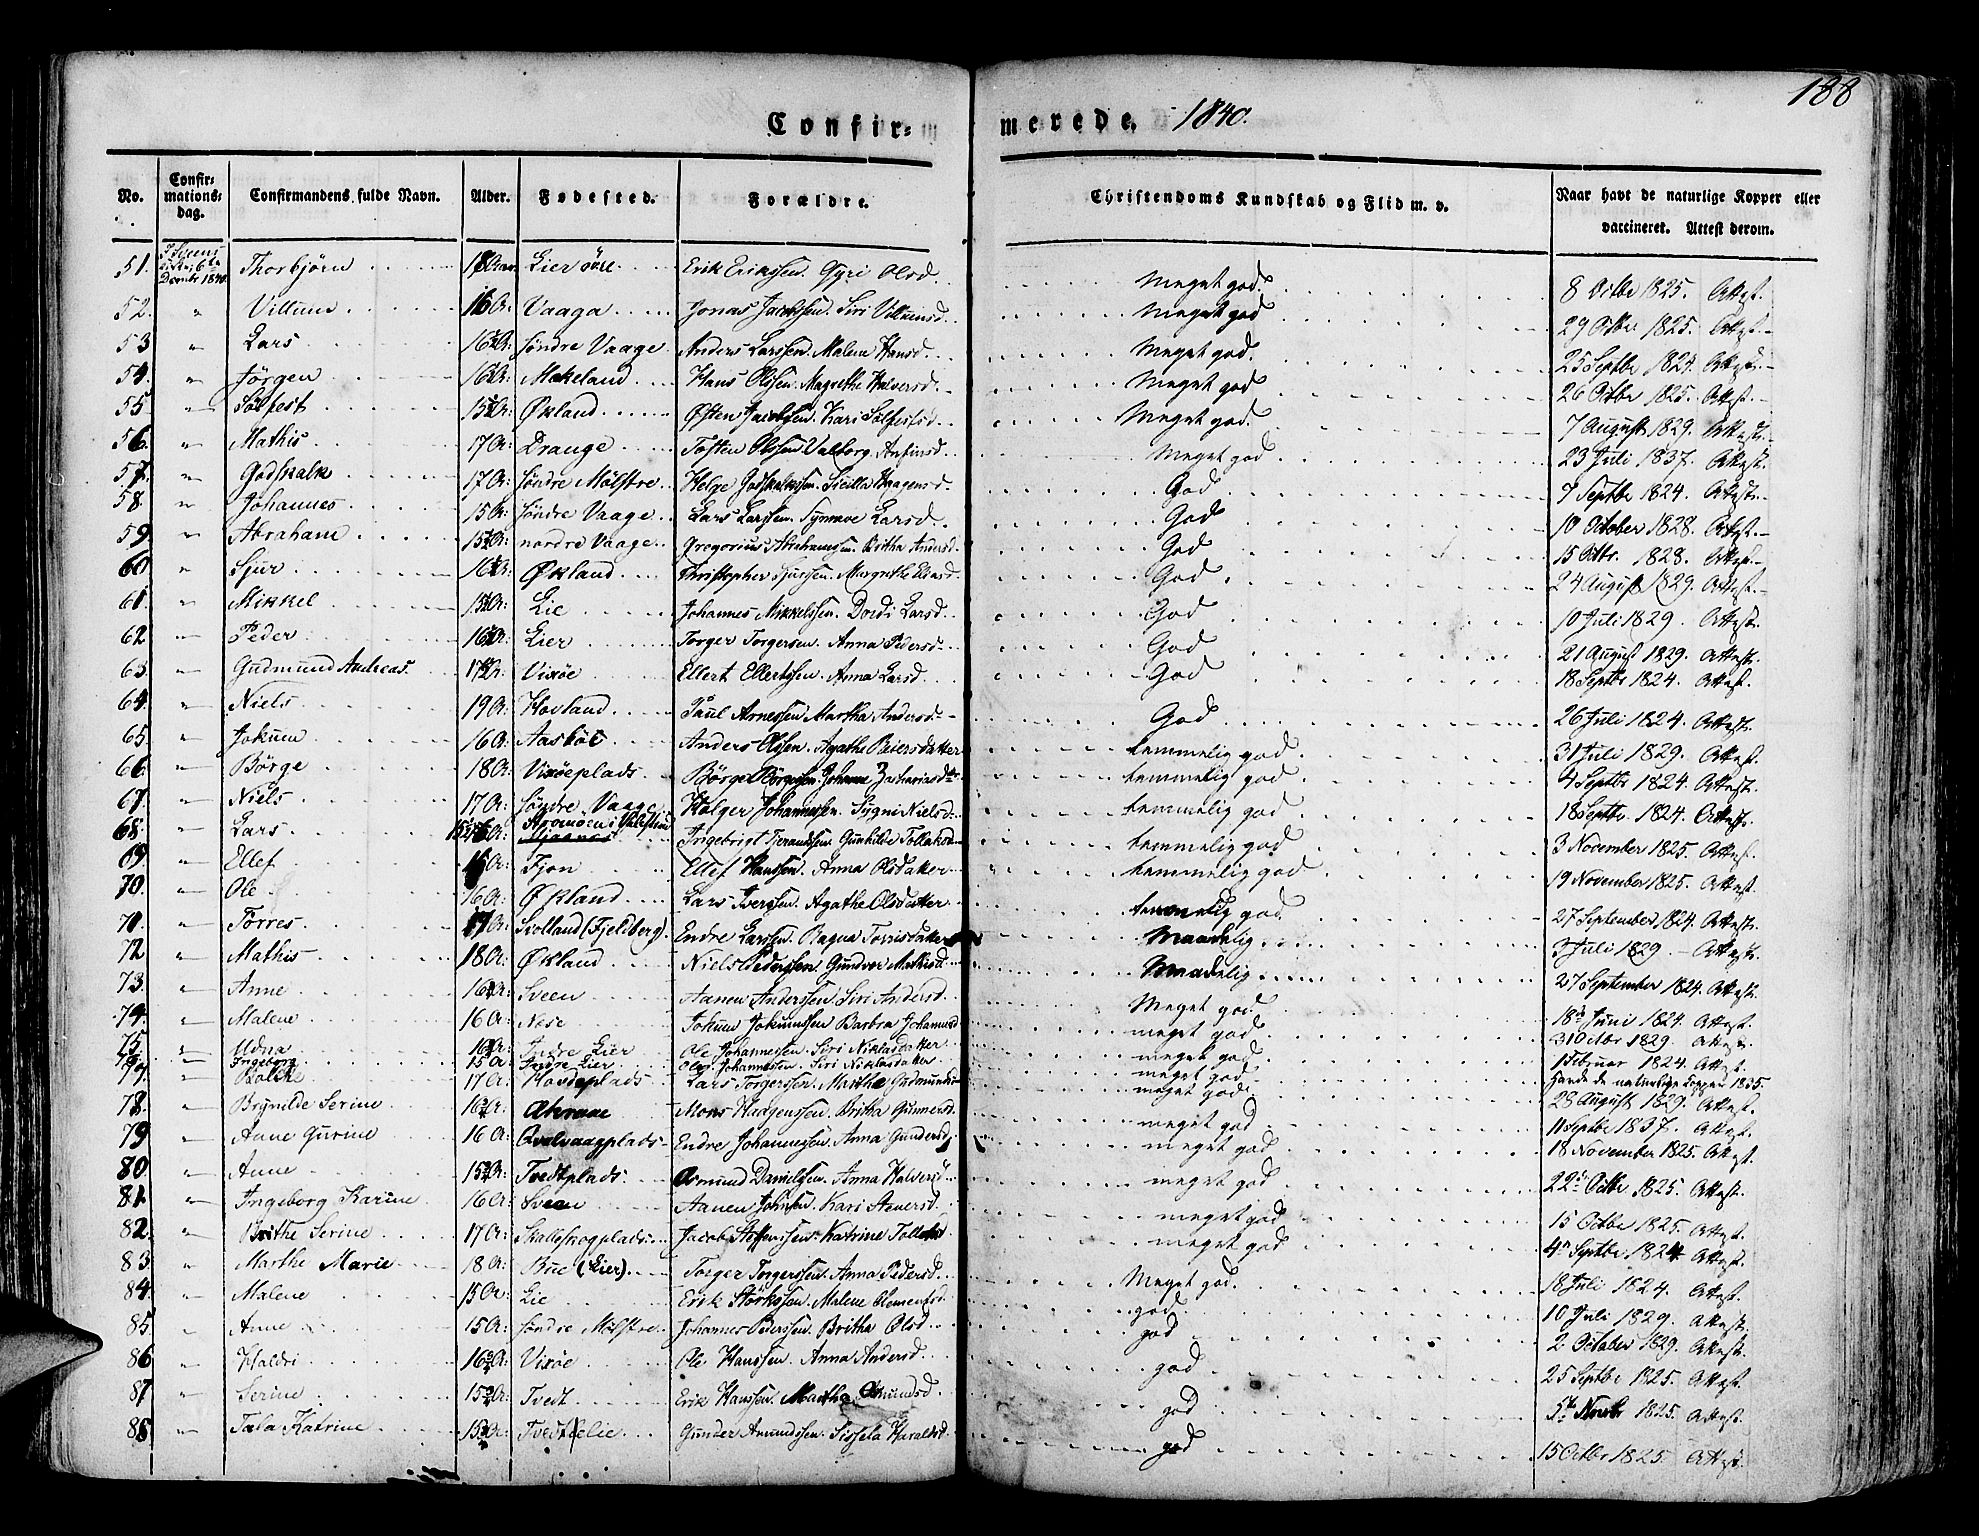 188
Confirmerede. 1840.
No. Confirmations-dag. Confirmandens fulde Navn. Alder. Fødested. Forældre. Christendoms Kundskab og Flid m. v. Naar havt de naturlige Kopper eller vaccineret. Attest derom.
51. Thorbjørn Lier øvre. Erik Erikssen. Gyri Olsd. Meget god. 8 Octbr 1825. Attest.
52. " Villum 16 A: Vaaga Jonas Jacobssen. Siri Villumsd. Meget god 29 Octbr 1825. Attest.
53 " Lars 16 A: Søndre Vaage Anders Larssen. Malene Hansd. Meget god. 25 Septbr 1824. Attest.
54. " Jörgen 16 A: Mokeland Hans Olssen. Magrethe Halversd. Meget god 26 Octbr 1825. Attest.
55 " Solfest 15 A: Økland Østen Jacobssen. Kari Solfestsd. Meget god. 7 August 1829. Attest.
56. " Mathis 17 A: Drange Tosten Olssen. Valborg Anfinsd. Meget god 23 Juli 1837. Attest.
57. " Godskalk 17 A: Søndre Mölstre Helge Godskalkssen. Sicilla Haagensd. God 7 Septbr 1824. Attest.
58. " Johannes 15 A: Søndre Vaage Lars Larssen. Synnave Larsd. God 10 October 1828. Attest.
59 " Abraham 15 A: nordre Vaage Gregorius Abrahamssen. Britha Andersd. God 15 Octbr. 1828. Attest.
60 " Sjur 16 A: Økland Christopher Sjurssen. Margrethe Eliasd. God 24 August 1829. Attest.
61. " Mikkel 15 A: Lie Johannes Mikkelssen. Dordi Larsd. God 10 Juli 1829. Attest.
62 " Peder 16 A: Lier Torger Torgersen. Anna Pedersd. God 21 August 1829. Attest.
63 " Gudmund Andreas. 17 A: Vixøe Ellert Ellertssen. Anna Larsd. God 18 Septbr 1824. Attest.
64. " Niels 19 A: Hovland Paul Arnessen Martha Andersd. God 26 Juli 1824. Attest.
65. " Jokum 16 A: Anders Olssen. Agathe Reiersdatter temmelig god. 31 Juli 1829. Attest.
66. " Børge 18 A: Vixøeplads Børge Johanne temmelig god 4 Septbr 1824. Attest.
67. " Niels 17 A: Søndre Vaage Holger Johannessen. Sygni Nielsd. temmelig god 18 Septbr 1824. Attest.
68. " Lars Ingebrigt Gunhilde temmelig god 3 November 1825. Attest.
69. " Ellef Fjon Ellef Hanssen. Anna Olsdatter temmelig god 19 November 1825. Attest.
70. " Ole 16 A: Økland Lars Iverssen. Agathe Olsdatter temmelig god 27 September 1824. Attest.
71. " Torres 17 A: (Fjeldberg). Endre Larssen. Ragna Torrisdatter Maadelig 3 Juli 1829. Attest.
72 " Mathis 18 A: Økland Niels Pederssen. Gundvor Mathisd. Maadelig 27 September 1824. Attest.
73. " Anne 16 A: Sveen Aanen Anderssen. Siri Andersd. Meget god 18 Juni 1824. Attest.
74. " Malene 16 A: Nese Jokum Jokumssen Barbra Johannesd meget god 31 Octbr 1829. Attest.
75. " Udna 16 A: Indre Lier Ole Johannessen. Siri Niklasdatter meget god 1 Februar 1824. Attest.
" Ingeborg 15 A: Indre Lier Ole Johannessen. Siri Niklasdatter meget god Havde de naturlige Kopper 1835.
17 A: Hovdeplads Lars Torgerssen. Martha Gudmundsd meget god. 28 August 1829. Attest.
78. " Brynilde Serine 16 A: Mons Haagenssen. Britha Gunnersd. meget god 11 Septbr 1837. Attest.
79 " Anne Gurine 16 A: Qvalvaagplads Endre Johannessen. Anna Gundersd. meget god 18 November 1825. Attest.
80 " Anne 15 A: Tvedtplads. Osmund Danielssen. Anna Halversd meget god 22 Octbr 1825. Attest.
81. " Ingeborg Karine 16 A: Sveen Aanen Johnsen. Kari meget god 15 Octbr 1825. Attest.
82. " Brithe Serine 17 A: Skallesnogplads. Jacob Steffenssen. Katrine meget god 4 Septbr 1824 Attest.
83 " Marthe Marie 18 A: Bue (Lier). Torger Torgerssen. Anna Pedersd. Meget god. 18 Juli 1824. Attest.
84. " Malene 15 A: Lie Erik Størkssen. Malene Clementsd. god 10 Juli 1829. Attest.
85. " Anne 15 A: Søndre Mölstre Johannes Pederssen. Britha Olsd. god 2 October 1829. Attest.
86 " Haldri 16 A: Vixøe Ole Hanssen. Anna Andersd. god 25 Septbr 1825. Attest.
87 " Serine 15 A: Tvedt Erik Hanssen. Martha god 5 1825. Attest.
88 " Tala Katrine 15 A: Gunder Amundssen. Sissela Haraldsd. god 15 Octbr 1825. Attest.